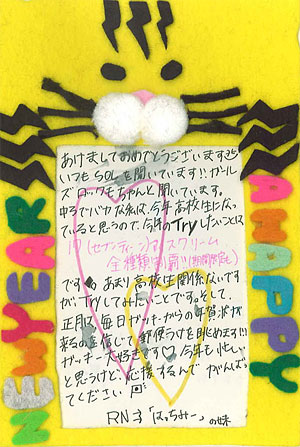 あけましておめでとうございます
いつもSOLを聞いています!!ガール
ズロックもちゃんと聞いています。
ゆるでバカな私は、今年高校生になっ
ていると思うので、今年のTryしたいことは
17(セブンティーン)アイスクリーム
全種類制覇!!(期間限定も)
です あまり高校生関係ないです
が、Tryしてみたいことです。そして、
正月、毎日ガッキーからの年賀状が
来るのを信じて郵便うけを眺めます!!!
ガッキー大好きです♡ 今年も忙しい
と思うけど、応援するんで がんばっ
てください
RN:「はっちみー」の妹
NEW YEAR
A HAPPY